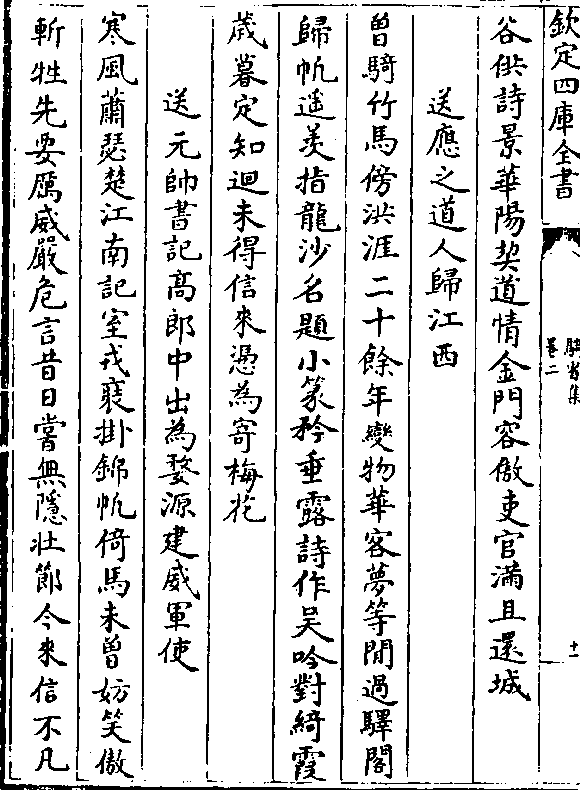 欽定四庫全書
騎省集
卷二
十一
谷供詩景華陽契道情金門容傲吏官滿且還城
送應之道人歸江西
曽騎竹馬傍洪涯二十餘年變物華客夢等閒過驛閣
歸帆遥羡指龍沙名題小篆矜垂露詩作吴吟對綺霞
歳暮定知迴未得信來憑為寄梅花
送元帥書記高郎中出為婺源建威軍使
寒風蕭瑟楚江南記室戎裝掛錦帆倚馬未曽妨笑傲
斬牲先要厲威嚴危言昔日嘗無隱壮節今來信不凡